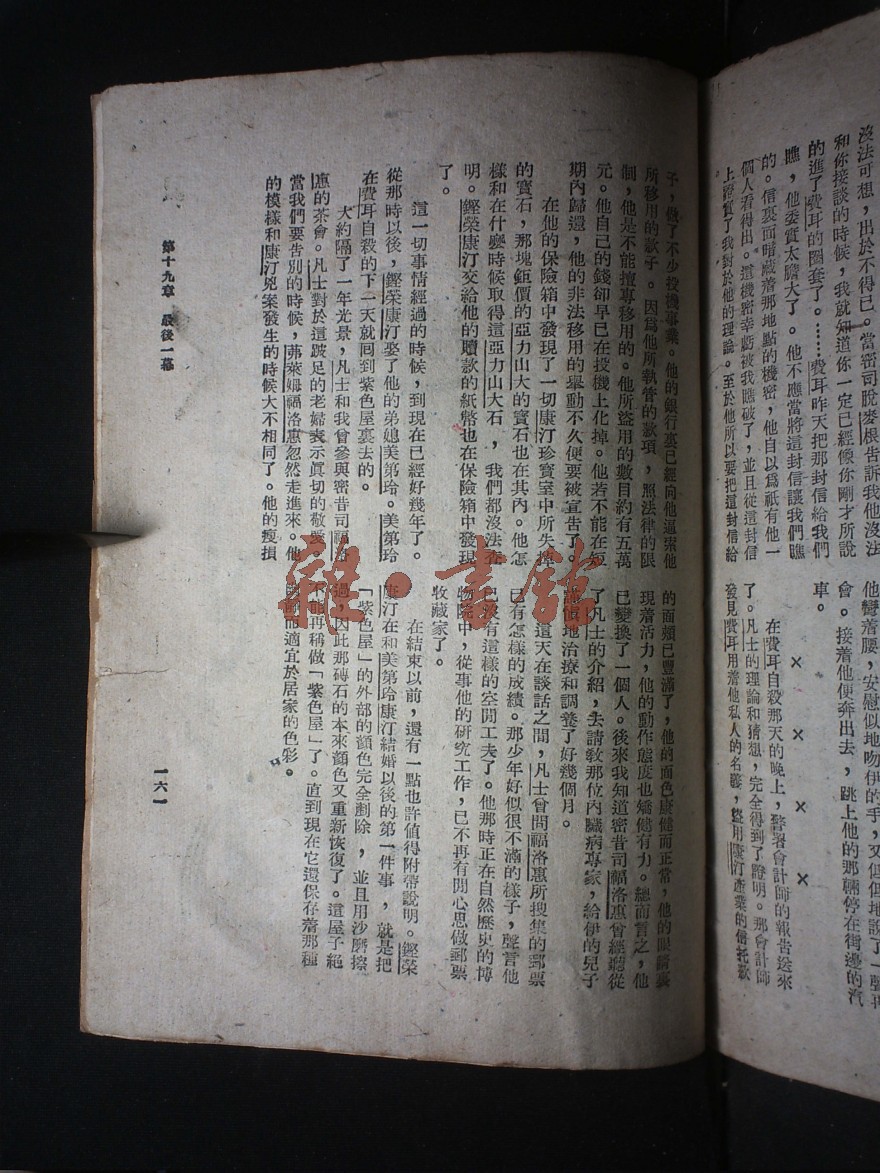 沒法可想，出於此。當密司脫麥根告訴我他沒法
和你接談的時候，我就知道你一定已經像你剛才所說
的進了費耳的圈套了。……費耳昨天把那封信給我們
瞧，他委實太膽大了。他不應當將這封信讓我們瞧
的。信裏面暗藏着那地點的機密，他自以爲祇有他一
個人看得出。這機密幸虧被我瞧破了，並且從這封信
上證實了我對於他的理論。至於他所以要把這封信給
他彎着腰，安慰似地吻伊的手，又但但地說了一聲再
會。接着他便奔出去，跳上他的那輛停在街邊的汽
車。
× × × ×
在費耳自殺那天的晚上，警署會計師的報告送來
了。凡士的理論和猜想，完全得到了證明。那會計師
發見費耳用着他私人的名義，盜用康汀產業的信托款
子，做了不少投機事業。他的銀行裏已經向他逼索他
所移用的款子。因爲他所執管的款項，照法律的限
制，他是不能擅專移用的。他所盜用的數目約有五萬
元。他自己的錢卻早已在投機上化掉。他若不能在短
期內歸還，他的非法移用的舉動不久便要被宣告了。
在他的保險箱中發現了一切康汀珍寶室中所失掉
的寶石，那塊鉅價的亞力山大的寶石也在其內。他怎
樣和在什麼時候取得這亞力山大石，我們都沒法查
明。鏗榮康汀交給他的贖款的紙幣也在保險箱中發現
了。
這一切事情經過的時候，到現在已經好幾年了。
從那時以後，鏗榮康汀娶了他的弟媳美第玲。美第玲
在費耳自殺的下一天就囘到紫色屋裏去的。
大約隔了一年光景，凡士和我曾參與密昔司福洛
惠的茶會。凡士對於這跛足的老婦表示眞切的敬愛。
當我們要告別的時候，茀萊姆福洛惠忽然走進來。他
的模樣和康汀兇案發生的時候大不相同了。他的瘦損
的面頰已豐滿了，他的面色康健而正常，他的眼睛裏
現着活力，他的動作態度也矯健有力。總而言之，他
已變換了一個人。後來我知道密昔司福洛惠曾經聽從
了凡士的介紹，去請敎那位內臟病專家，給伊的兒子
謹愼地治療和調養了好幾個月。
這天在談話之間，凡士曾問福洛惠所搜集的郵票
已有怎樣的成績。那少年好似很不滿的樣子，聲言他
已沒有這樣的空閒工夫了。他那時正在自然歷史的博
物院中，從事他的研究工作，已不再有閒心思做郵票
收藏家了。
在結束以前，還有一點也許値得附帶說明。鏗榮
康汀在和美第玲康汀結婚以後的第一件事，就是把
「紫色屋」的外部的顏色完全剷除，並且用沙磨擦
過，因此那磚石的本來顏色又重新恢復了。這屋子絕
不能再稱做「紫色屋」了。直到現在它還保存着那種
而適宜於居家的色彩。
第十九章 最後一幕
一六一
雜·書館